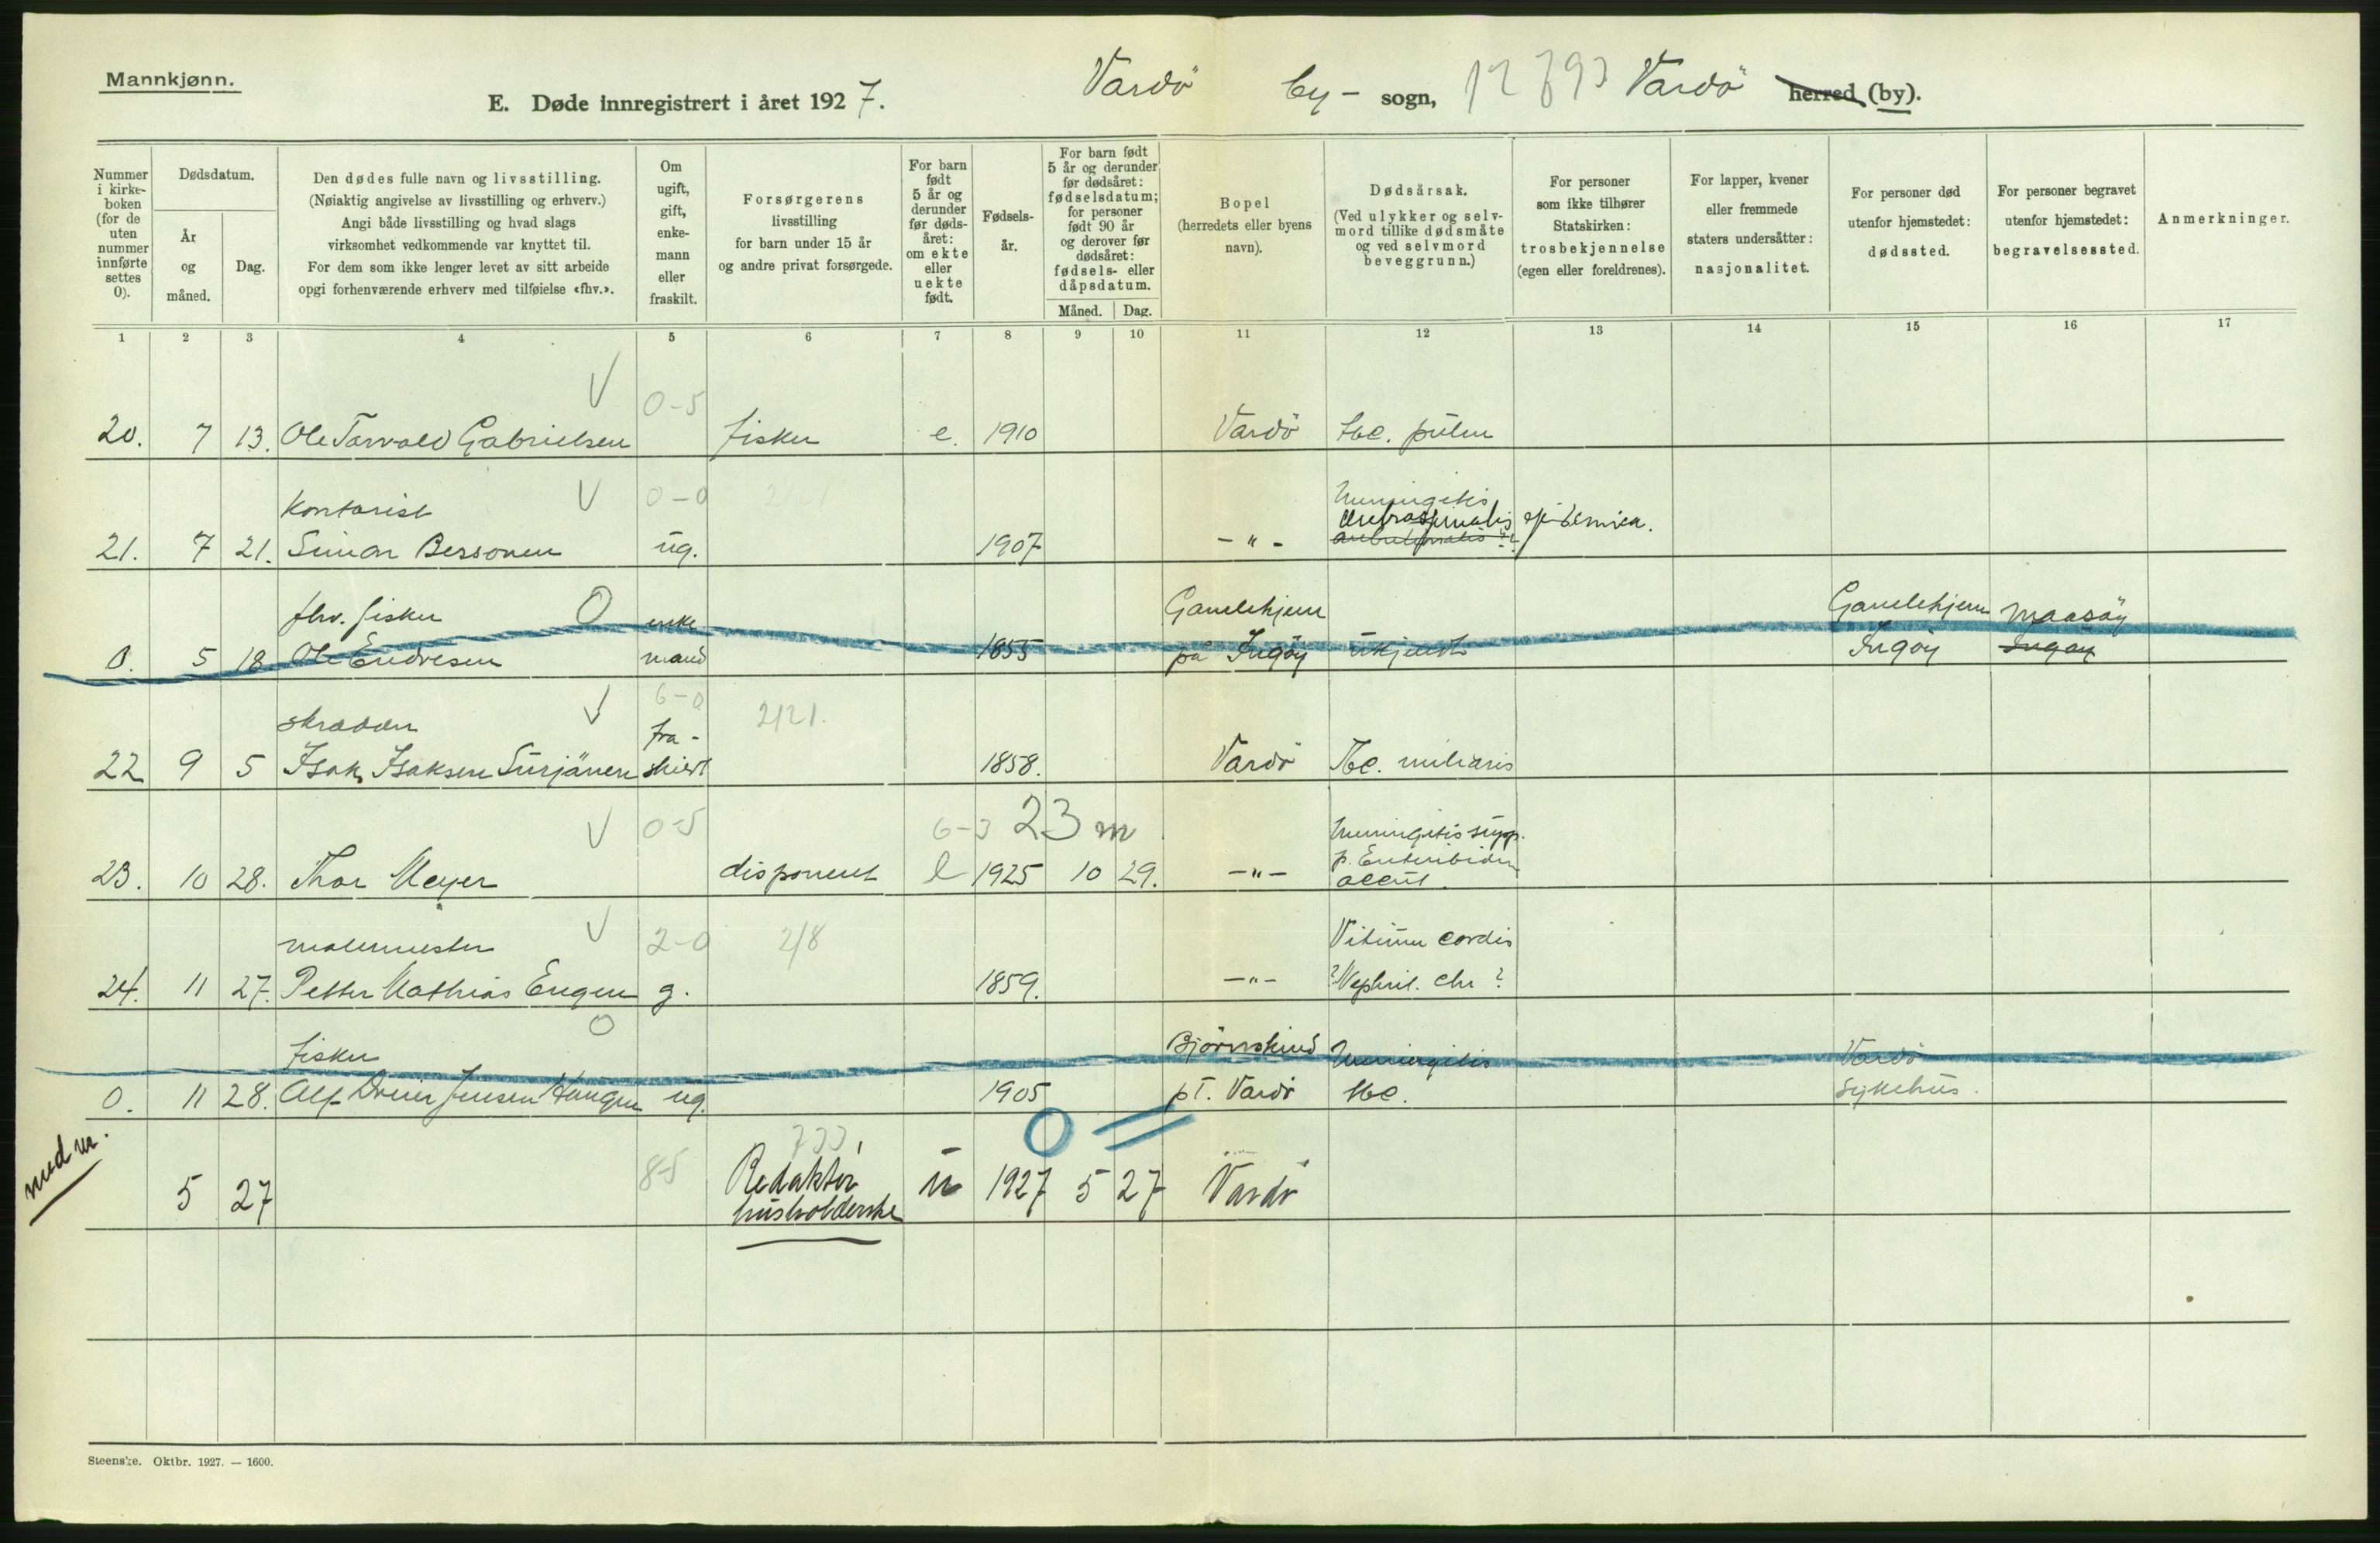 Mannkjønn.
E. Døde innregistrert i året 1927.
Vardö by- sogn, Vardö herred (by).
Nummer i kirke- boken (for de uten nummer innførte settes 0).
Dødsdatum.
År og måned.
Dag.
Den dødes fulle navn og livsstilling.
(Nøiaktig angivelse av livsstilling og erhverv.)
Angi både livsstilling og hvad slags
virksomhet vedkommende var knyttet til.
For dem som ikke lenger levet av sitt arbeide
opgi forhenværende erhverv med tilføielse «fhv.».
Om ugift, gift, enke- mann eller fraskilt.
Forsørgerens
livsstilling
for barn under 15 år
og andre privat forsørgede.
For barn født 5 år og derunder før døds- året: om ekte eller uekte født.
Fødsels- år.
For barn født 5 år og derunder før dødsåret: fødselsdatum; for personer født 90 år og derover før dødsåret: fødsels- eller dåpsdatum.
Måned. Dag.
Bopel
(herredets eller byens
navn).
Dødsårsak.
(Ved ulykker og selv-
mord tillike dødsmåte
og ved selvmord
beveggrunn.)
For personer
som ikke tilhører
Statskirken:
trosbekjennelse
(egen eller foreldrenes).
For lapper, kvener
eller fremmede
staters undersåtter:
nasjonalitet.
For personer død
utenfor hjemstedet:
dødssted.
For personer begravet
utenfor hjemstedet:
begravelsessted.
Anmerkninger.
1 2 3 4 5 6 7 8 9 10 11 12 13 14 15 16 17
0-5
20. 7 13. Ole Torvald Gabrielsen fisker e. 1910 Vardö tbc. pulm
Kontorist 0-0 Meningitis
cerebrospinalis epidemica.
21. 7 21. Simon Bessonen ug. 1907 -"-
fhv. fisker O enke Gamlehjem Gamlehjem Maasöy
0. 5 18 Ole Endresen mand 1855 på Ingöy ukjendt Ingöy Ingöy
6-0
skrædder fra- 2121.
22 9 5 Isak Isaksen Surjänen skildt 1858. Vardö Tbc. miliaris
0-5 6-3 23 m Meningitis supp.
23. 10 28. Thor Meyer disponent e 1925 10 29. -"-
malermester 2-0 2/8 Vitium cordis
24. 11 27. Petter Mathias Engen g. 1859. -"- ? Nephrit. chr ?
O
fisker Björnskind Meningitis Vardö
0. 11 28. Alf Jensen Haugen ug. 1905 pT. Vardö tbc. Sykehus.
O =
med m.
8-5 Redaktör
5 27 husholderske u 1927 5 27 Vardö
Steenske. Oktbr. 1927. — 1600.